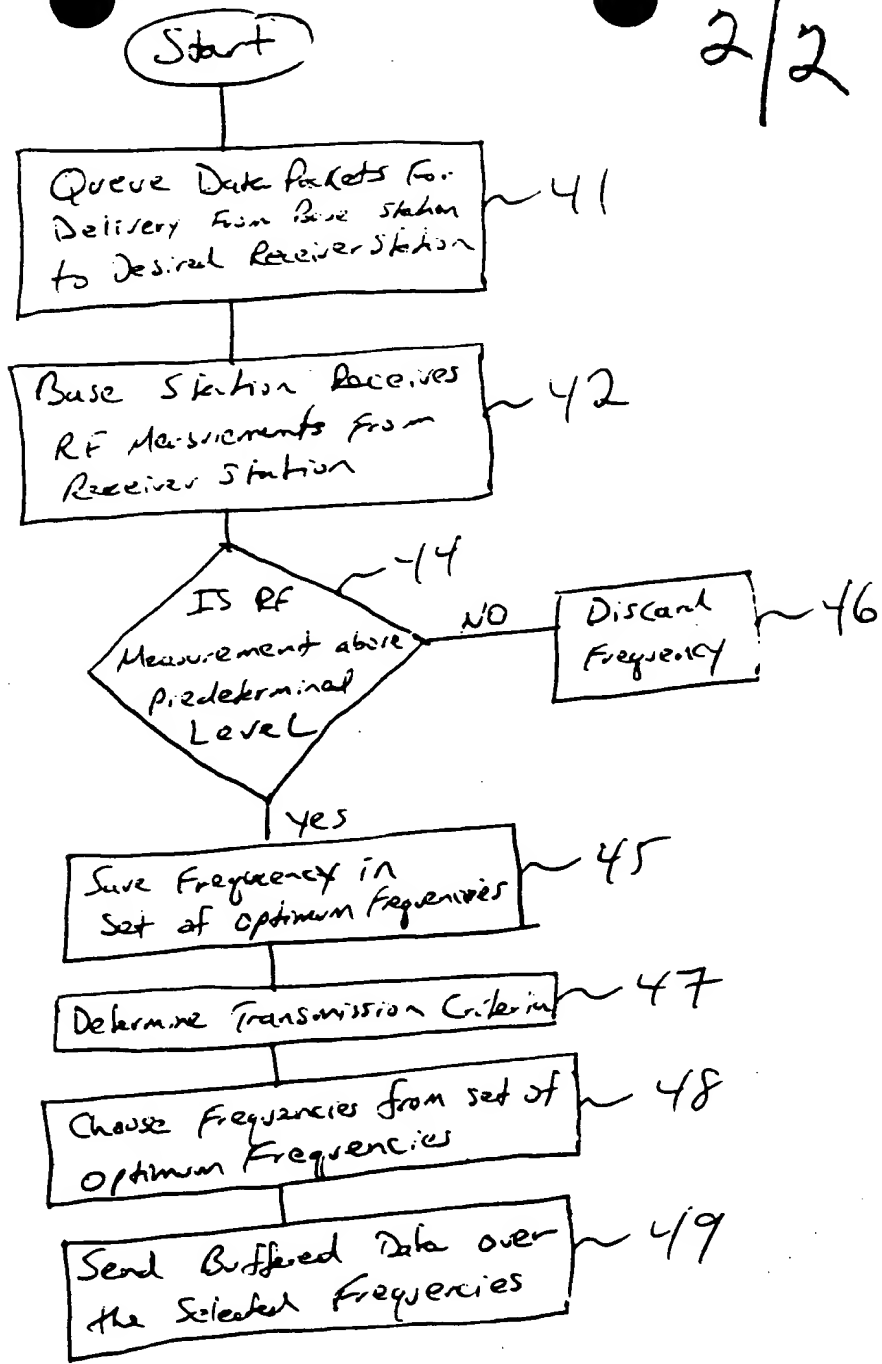 2/2
Start
Queue Data Packets For
Delivery From Base Station
to Desired Receiver Station
41
Base Station Receives
RF Measurements From
Receiver Station
42
IS RF
Measurement above
Predetermined
Level
44
NO
Discard
Frequency
46
yes
Save Frequency in
Set of optimum Frequencies
45
Determine Transmission Criteria
47
Choose Frequencies from set of
optimum Frequencies
48
Send Buffered Data over
the Selected Frequencies
49